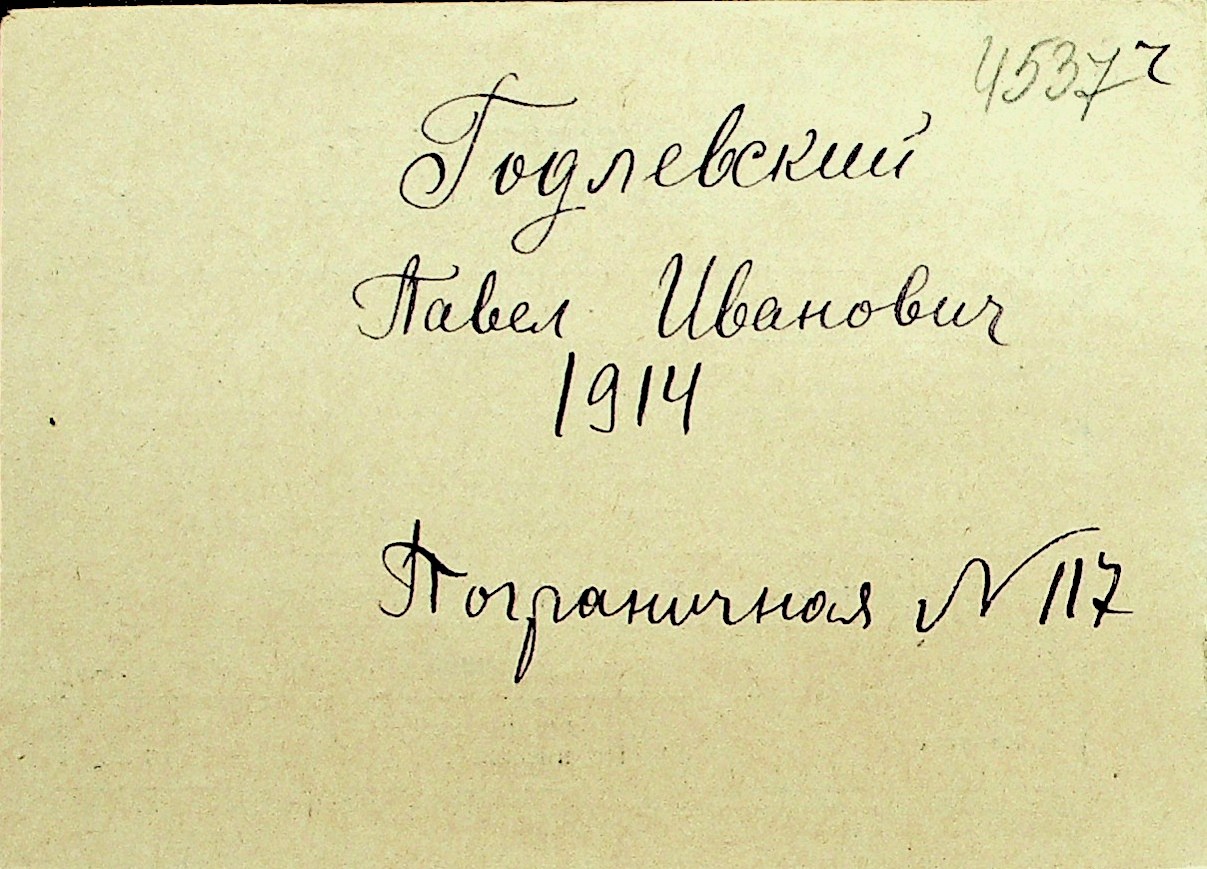 4537 ч
Годлевский
Павел Иванович
1914
Пограничная № 117